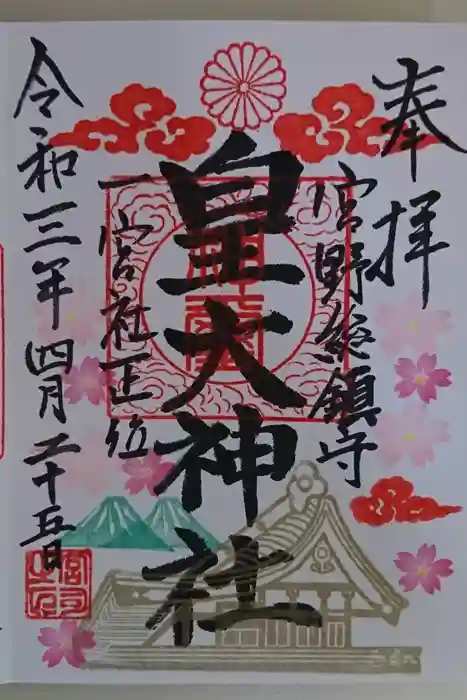 奉拝
宮野総鎮守
皇大神社
一宮社正位
令和三年四月二十五日